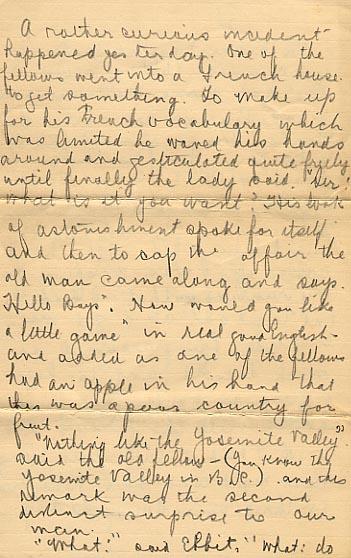 A rather curious incident
happened yesterday. One of the
fellows went into a French house
to get something. To make up
for his French vocabulary which
was limited he waved his hands
around and gesticulated quite freely
until finally the lady said. "Sir!
what is it you want? His look
of astonishment spoke for itself
and then to cap the affair the
old man came along and says.
Hello Boys". How would you like
a little game" in real good English -
and added as one of the fellows
had an apple in his hand that
this was a poor country for
fruit.
"Nothing like the Yosemite Valley."
said the old fellow - (You know the
Yosemite Valley in B.C.) and this
remark was the second
distinct surprise to our
man.
"What." said "What: do